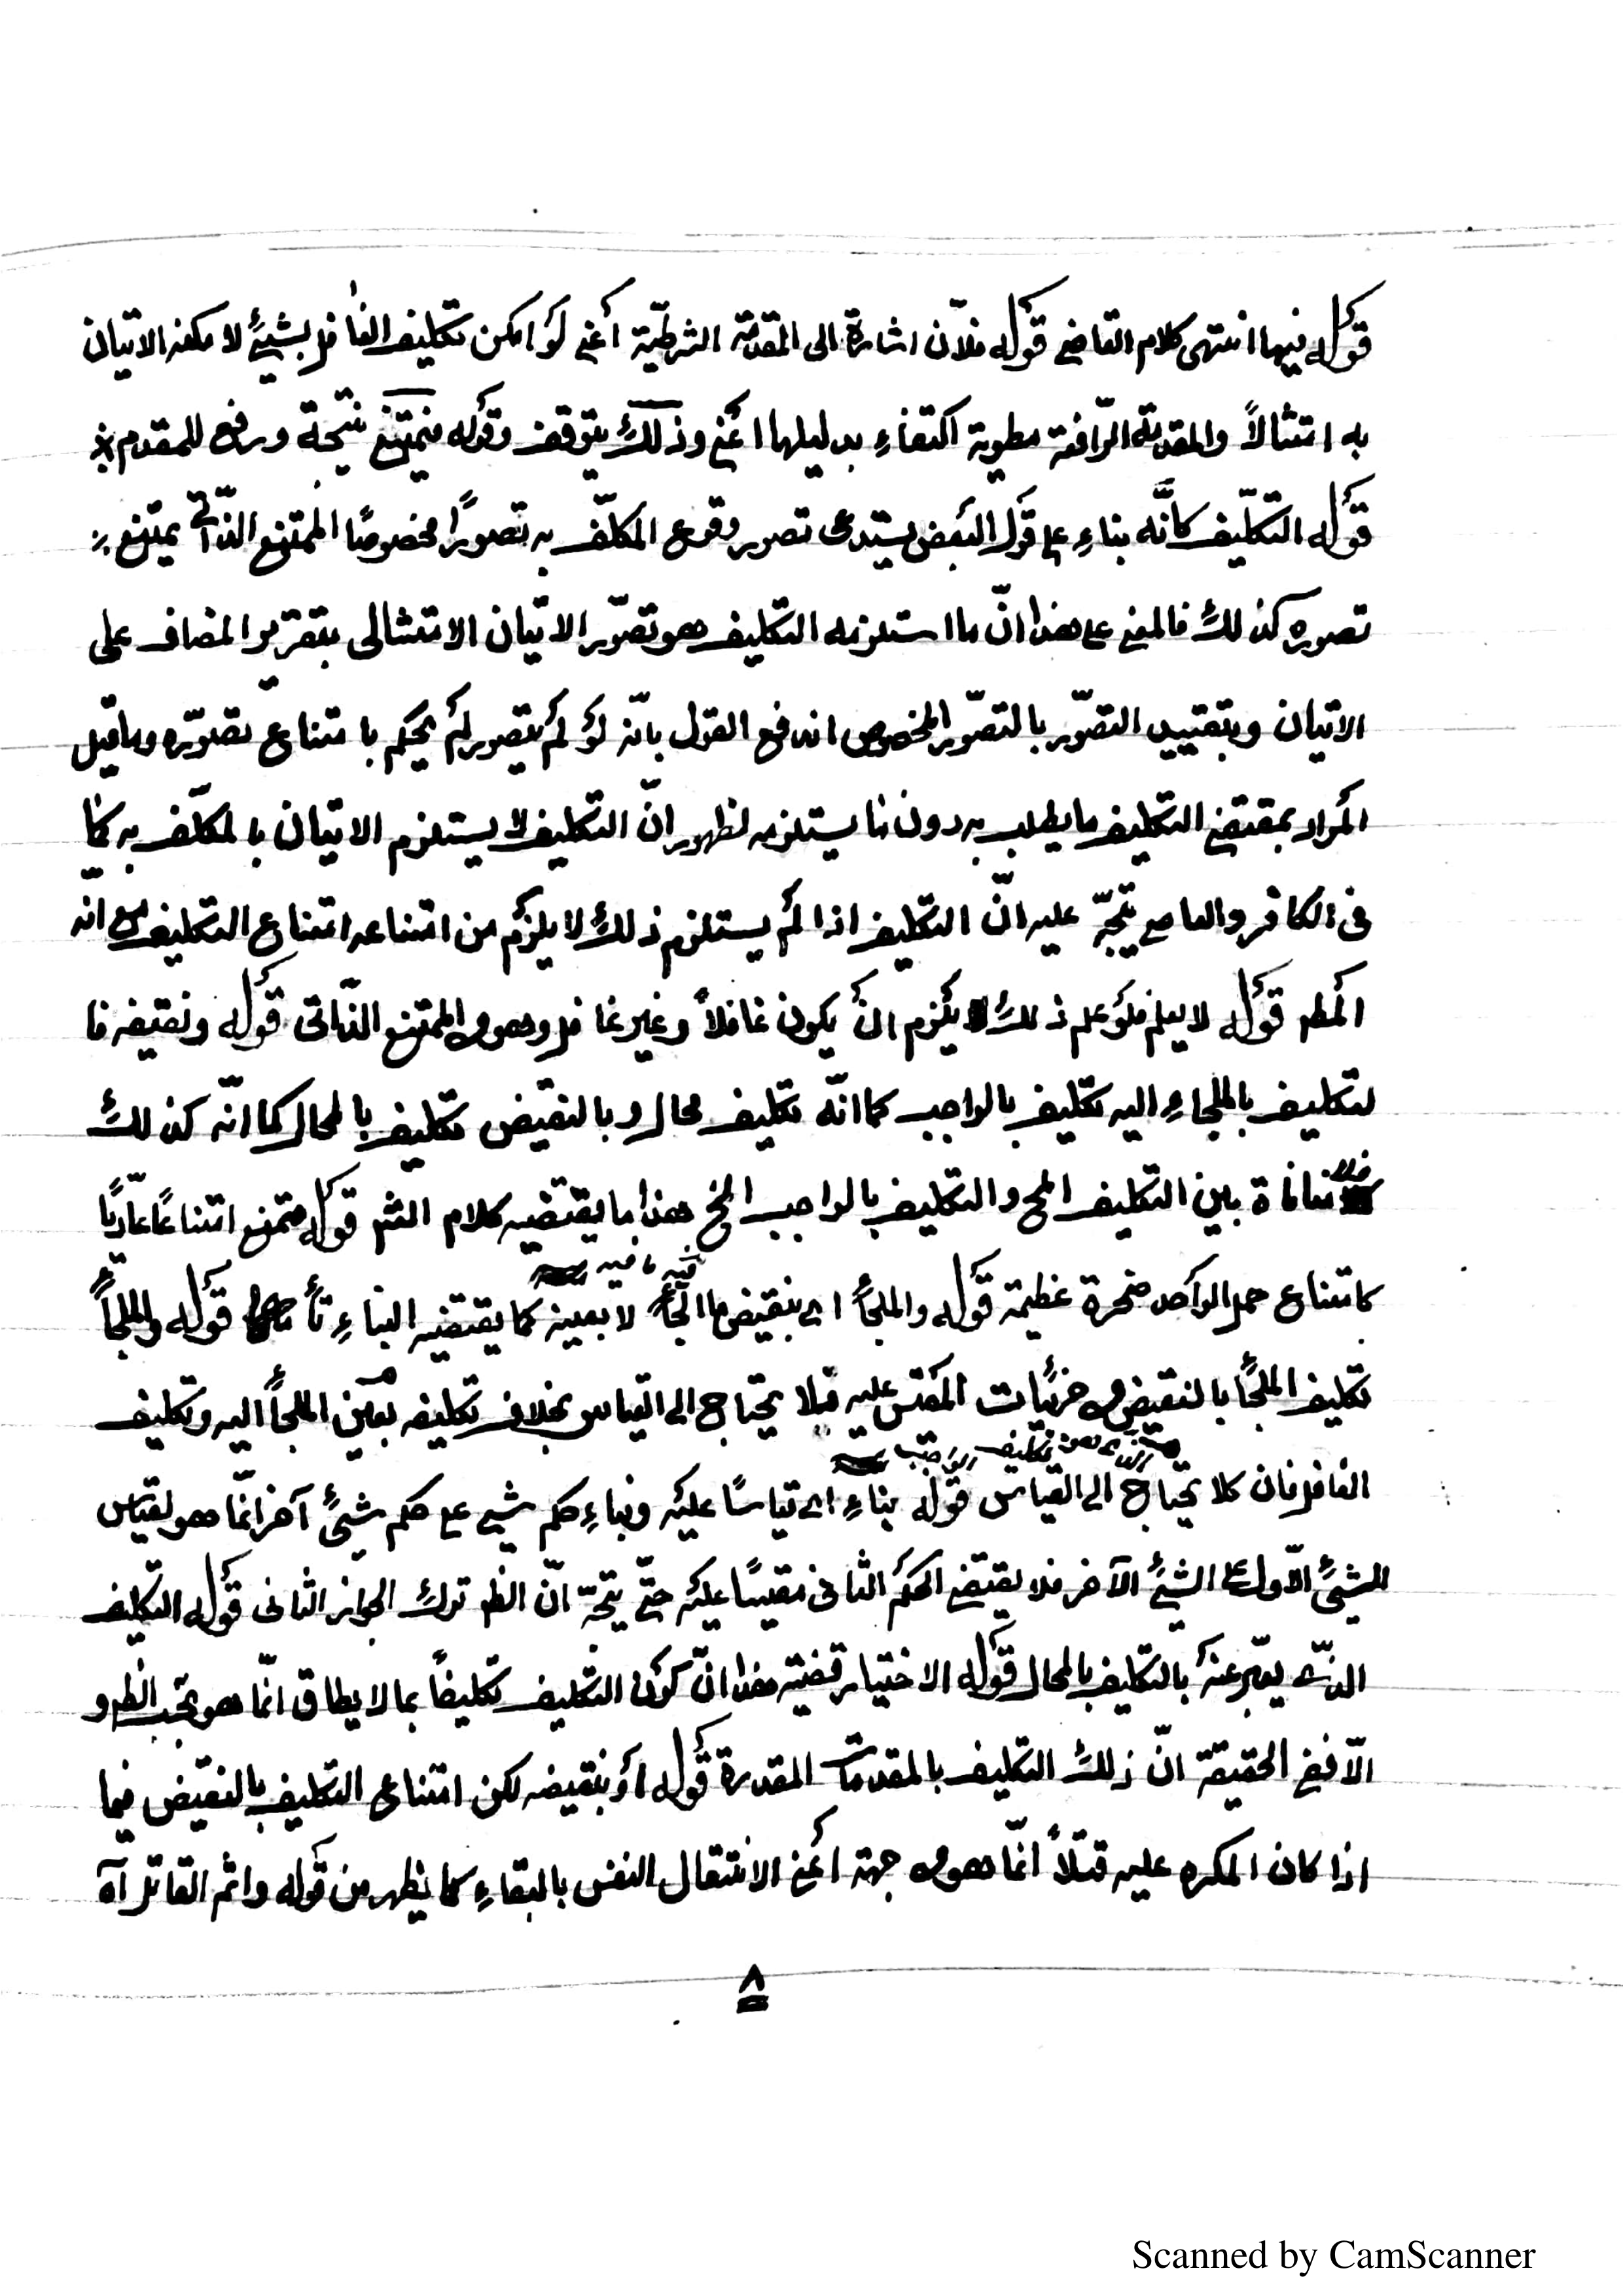 قوله فيها انتهى كلام القاضي قوله فلانّ اشارة الى المقدمة الشرطيّة أعني لو امكن تكليف الغافل بشيئ لامكنه الاتيان
به امتثالاً والمقدمة الرّافعة مطوية اكتفاء بدليلها اعني وذلك يتوقف وقوله فيمتنع نتيجة ورفع للمقدم
قوله التكليف كانّه بناء على قول البعض يستدعى تصور وقوع المكلّف به تصورًا مخصوصًا الممتنع الذّاتي يمتنع
تصوره كذلك فالمعنى على هذا انّ ما استلزمه التكليف هو تصوّر الاتيان الامتثالى بتقرير المضاف على
الاتيان وبتقييد التصوّر بالتصوّر المخصوص اندفع القول بانّه لو لم يتصور لم يحكم بامتناع تصوّره وما قيل
المراد بمقتضى التكليف ما يطلب به دون ما يستلزمه لظهور انّ التكليف لا يستلزم الاتيان بالمكلّف به كما
فى الكافر والعاصي يتجّه عليه انّ التكليف اذا لم يستلزم ذلك لا يلزم من امتناعه امتناع التكليف مع انه
المط قوله لا يعلم فلو علم ذلك يلزم ان يكون غافلاً وغير غافل وهو الممتنع الذّاتى قوله ونقيضه فا
لتكليف بالملجاء اليه تكليف بالواجب كما انّه تكليف محال وبالنقيض تكليف بالمحال كما انّه كذلك
فلا منافاة بين التكليف المح والتكليف بالواجب الخ هذا ما يقتضيه كلام الشم قوله ممتنع امتناعًا عاديًا
كامتناع حمل الواحد صخرة عظيمة قوله والملجأ اى بنقيض ما الجأ لا بعينه كما يقتضيه البناء تأ قوله والملجأ
فيه ما فيه
تكليف الملجأ بالنقيض من جزئيات المقتس عليه فلا يحتاج الى القياس بخلاف تكليفه بعين الملجأ اليه وتكليف
الذى هو تكليف بالواجب
الغافل فان كلا يحتاج الى القياس قوله بناء اى قياسًا عليه وبناء حكم شيئ على حكم شيئ آخر انّما هو لقياس
الشيئ الاوّل على الشيئ الآخر فلا يقتضي الحكم الثانى مقيسًا عليه حتّى يتجّه انّ الظ ترك الجواز الثانى قوله التكليف
الذي يعبّر عنه بالتكليف بالمحال قوله الاختيار قضيّة هذا انّ كون التكليف تكليفاً بما لا يطاق انّما هو بحسب الظ و
الّا ففي الحقيقة انّ ذلك التكليف بالمقدمات المقدرة قوله أو بنقيضه لكن امتناع التكليف بالنقيض فيما
اذا كان المكره عليه قتلاً انّما هو من جهة اعني الانتقال النفس بالبقاء كما يظهر من قوله واثم القاتل آه
٨
Scanned by CamScanner